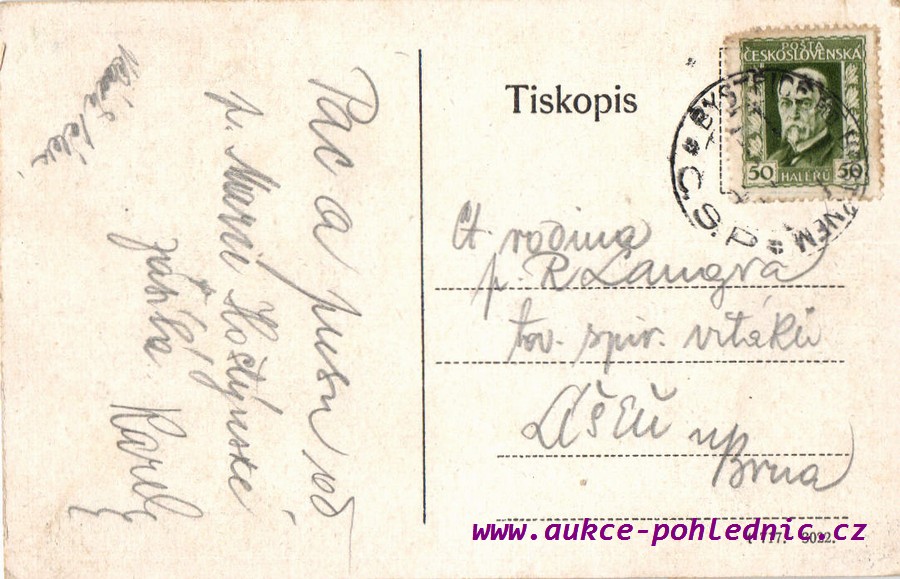 Pac a pusu od
p. Marii Hostýnské
Tiskopis
POŠTA
ČESKOSLOVENSKÁ
50 HALÉŘŮ 50
BYSTŘICE
Č.S.P.
Ct. rodina
p. R Langra
tov. spir.
Líšeň u
Brna
www.aukce-pohlednic.cz